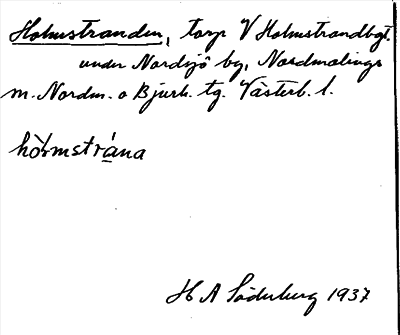 Holmstranden, torp V Holmstrandbgt.
under Nordsjö by, Nordmalings
m. Nordm. o Bjurh. tg. Västerb. l.
hòlmstrána
H A Söderberg 1937